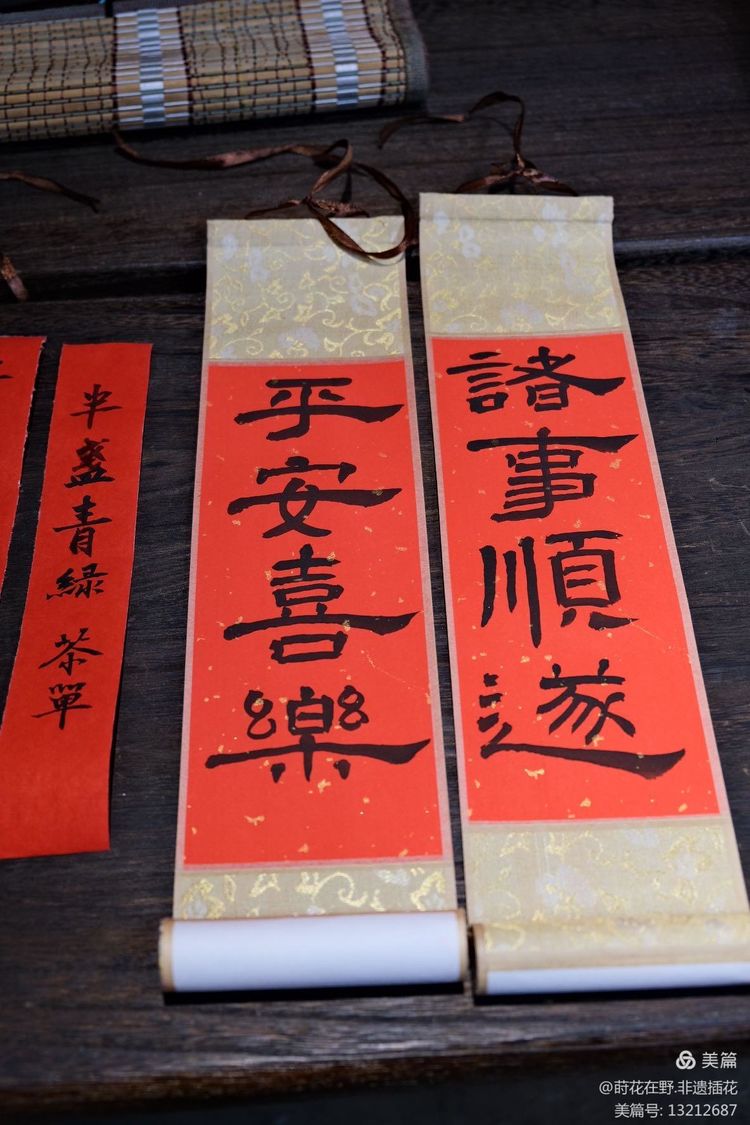 諸事順遂
平安喜樂
半盏青緑 茶單
美篇
@莳花在野.非遗插花
美篇号: 13212687